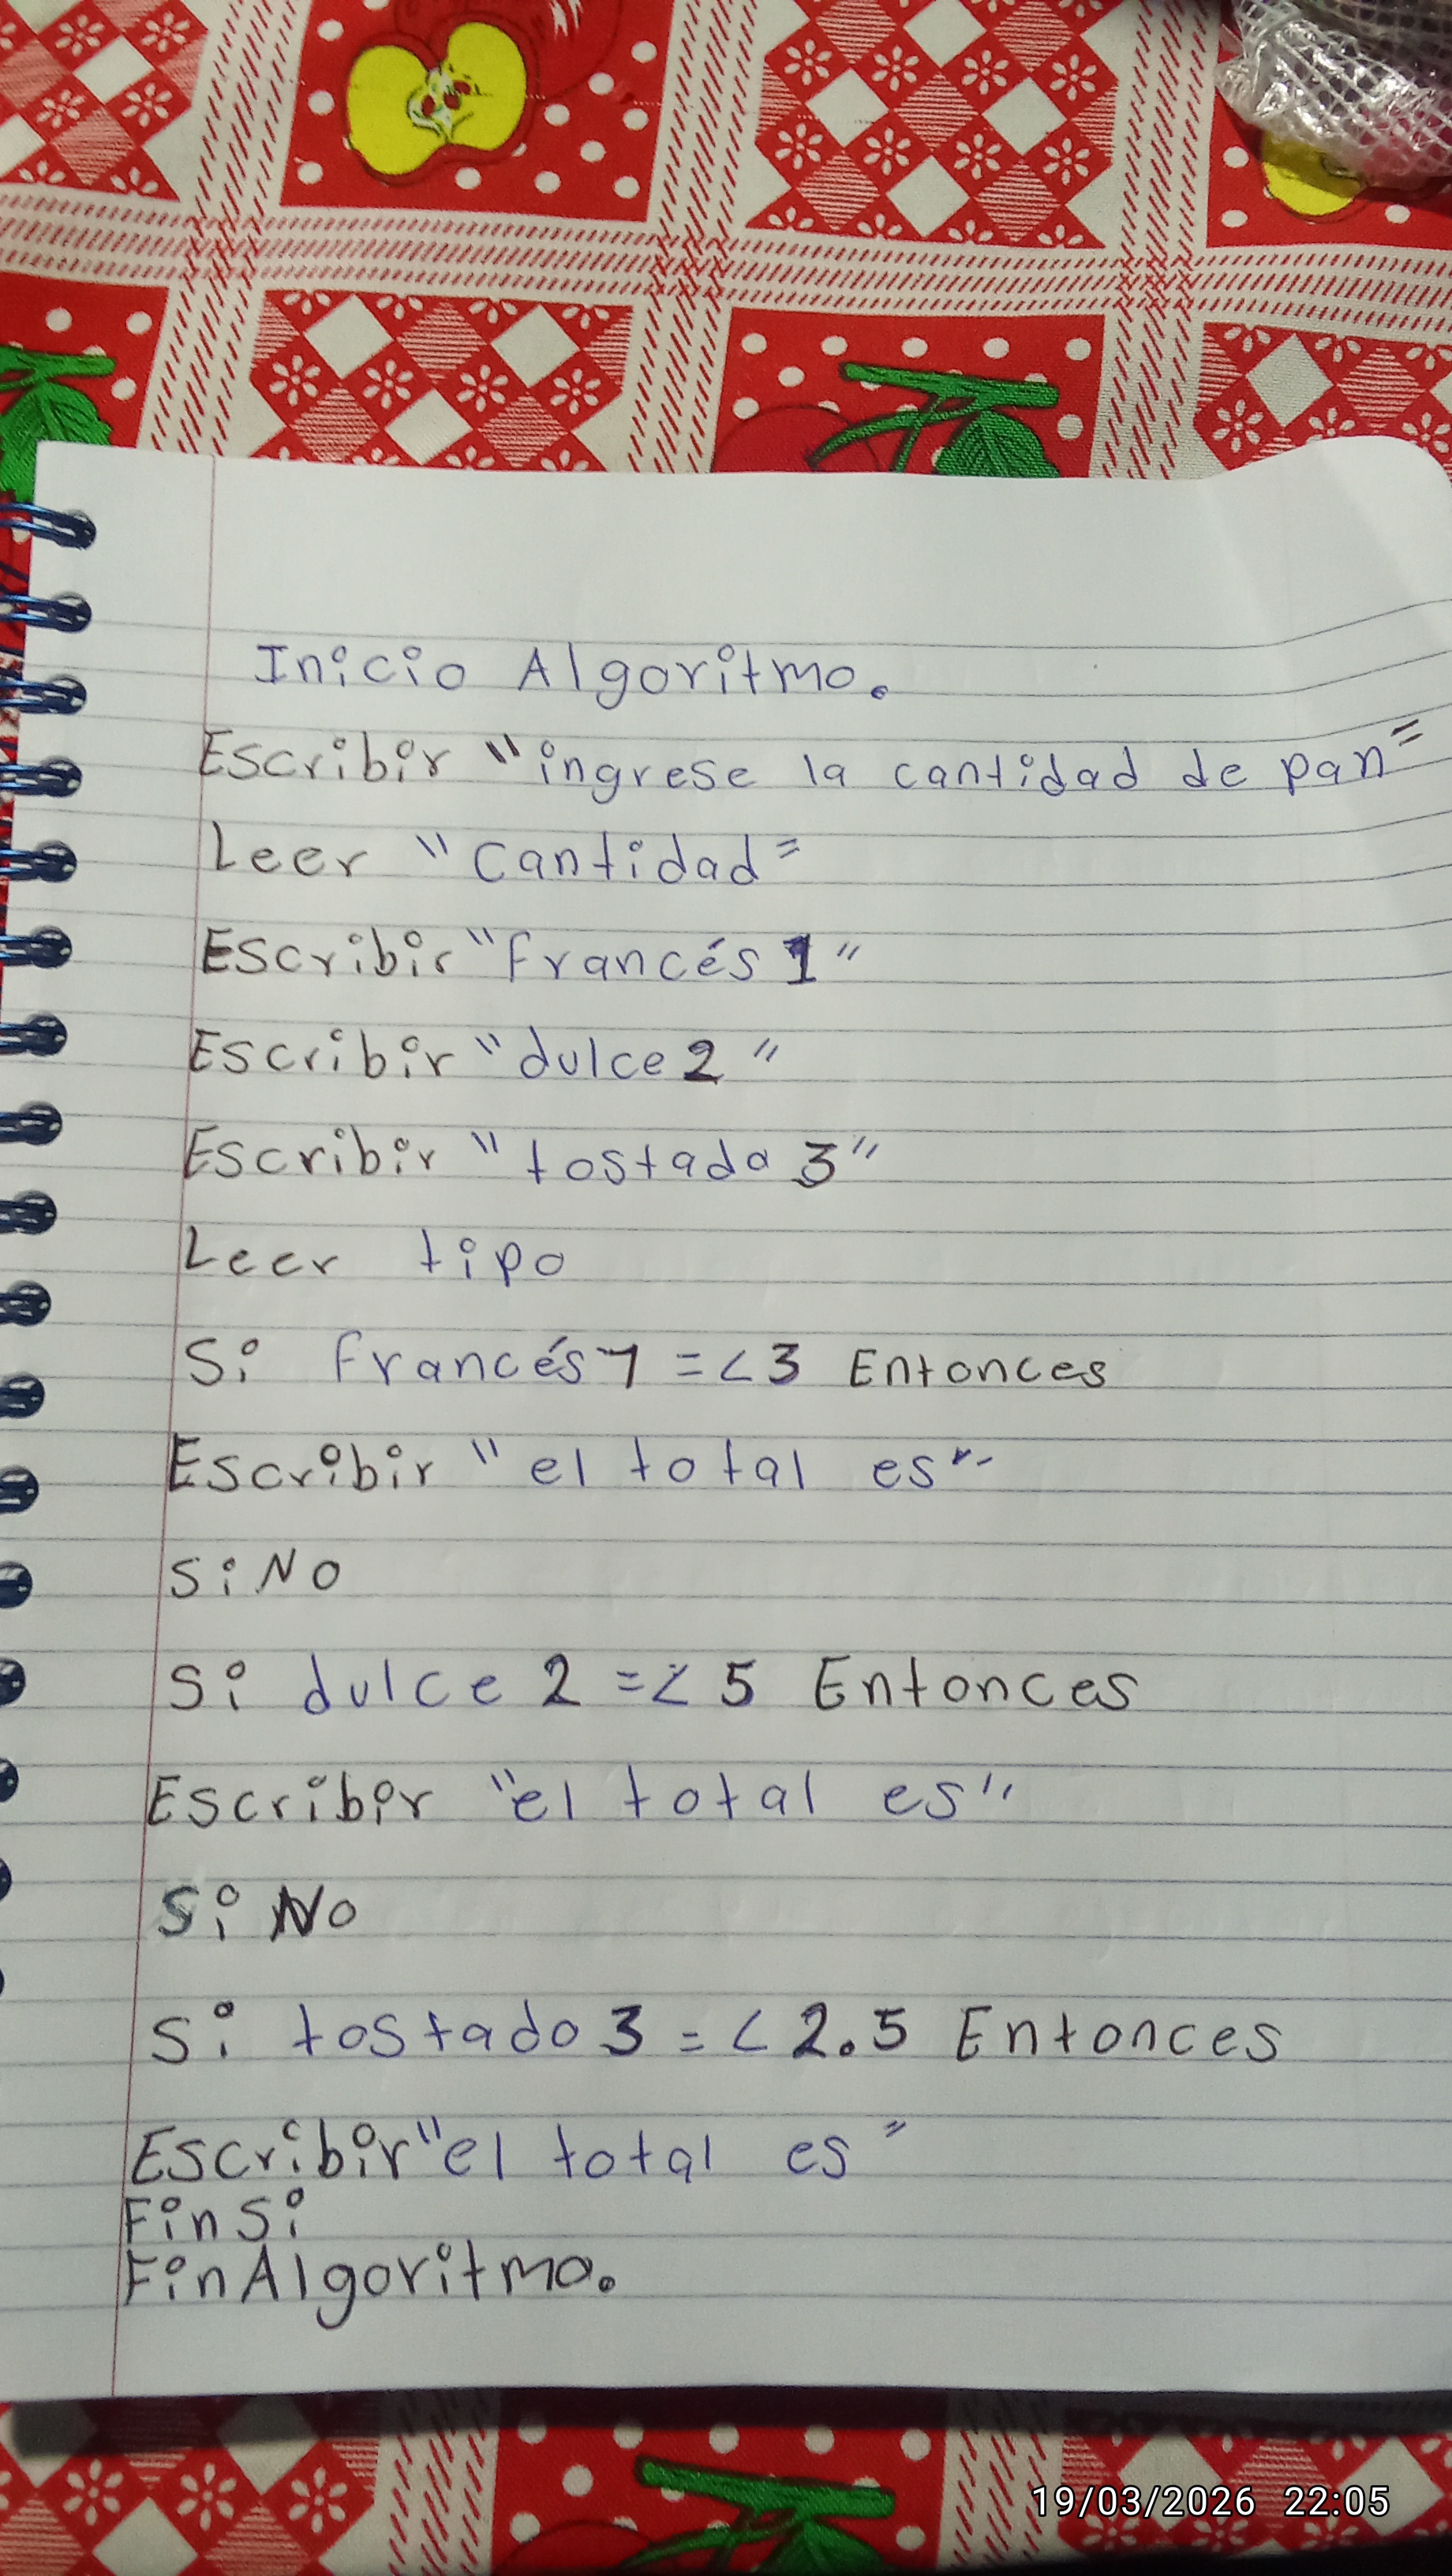 Inicio Algoritmo.
Escribir "ingrese la cantidad de pan"
Leer "Cantidad"
Escribir "francés 1"
Escribir "dulce 2"
Escribir "tostado 3"
Leer tipo
Si francés 1 =< 3 Entonces
Escribir "el total es"
SiNo
Si dulce 2 =< 5 Entonces
Escribir "el total es"
SiNo
Si tostado 3 =< 2.5 Entonces
Escribir "el total es"
FinSi
FinAlgoritmo.
19/03/2026 22:05